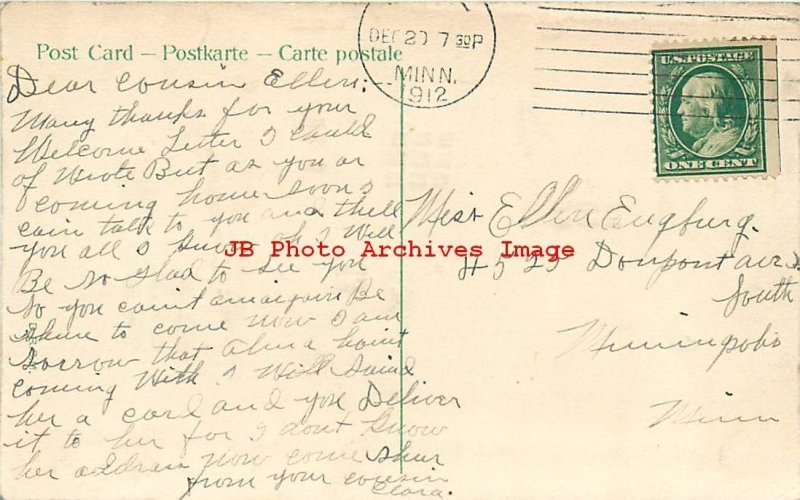 Post Card — Postkarte — Carte postale
DEC 20 7 30P
MINN.
1912
U.S. POSTAGE
ONE CENT
Dear Cousin Ellin;
Many thanks for your
Welcome Letter I could
of Wrote But as you ar
coming home soon I
cain talk to you and thell
you all I know oh I Will
Be so glad to see you
so you caint amaigain Be
shure to come now I am
sorrow that Alma haint
coming With I Will Saind
her a card and you Deliver
it to her for I dont know
her address now come shur
from your cousin
Clara.
Miss Ellin Engburg.
#525 Dounpont av
South
Minniapolis
Minn
JB Photo Archives Image